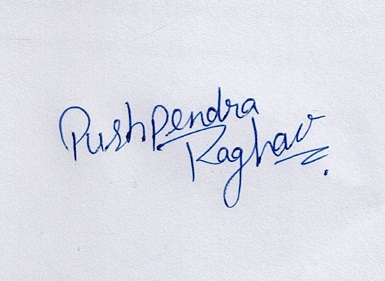 Pushpendra
Raghav